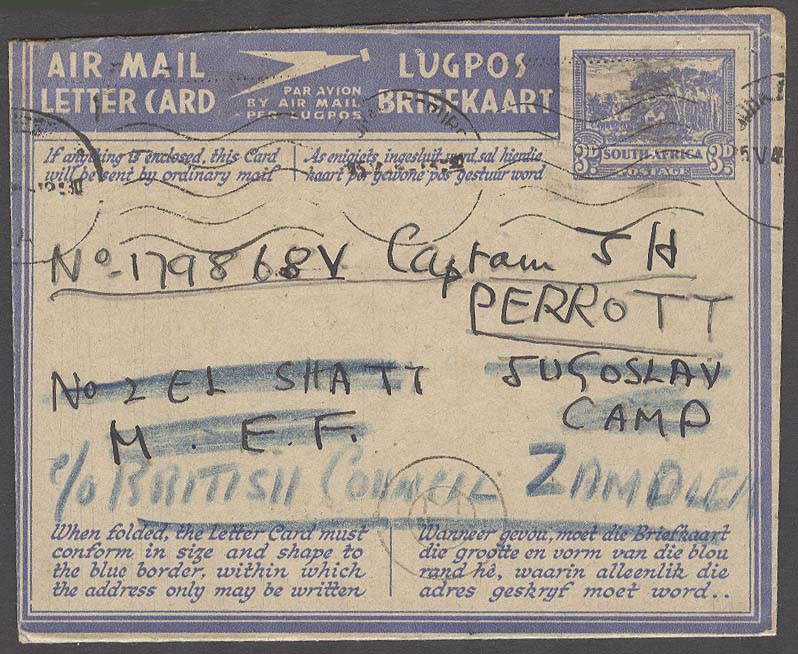 AIR MAIL
LETTER CARD
PAR AVION
BY AIR MAIL
PER LUGPOS
LUGPOS
BRIEFKAART
3D SOUTH AFRICA 3D
POSTAGE
If anything is enclosed, this Card
will be sent by ordinary mail
As enigiets ingesluit word, sal hierdie
kaart per gewone pos gestuur word
No. 179868V Captain J H
PERROTT
No 2 EL SHATT JUGOSLAV
CAMP
M. E. F.
c/o BRITISH COUNCIL
When folded, the Letter Card must
conform in size and shape to
the blue border, within which
the address only may be written
Wanneer gevou, moet die Briefkaart
die grootte en vorm van die blou
rand hê, waarin alleenlik die
adres geskryf moet word..